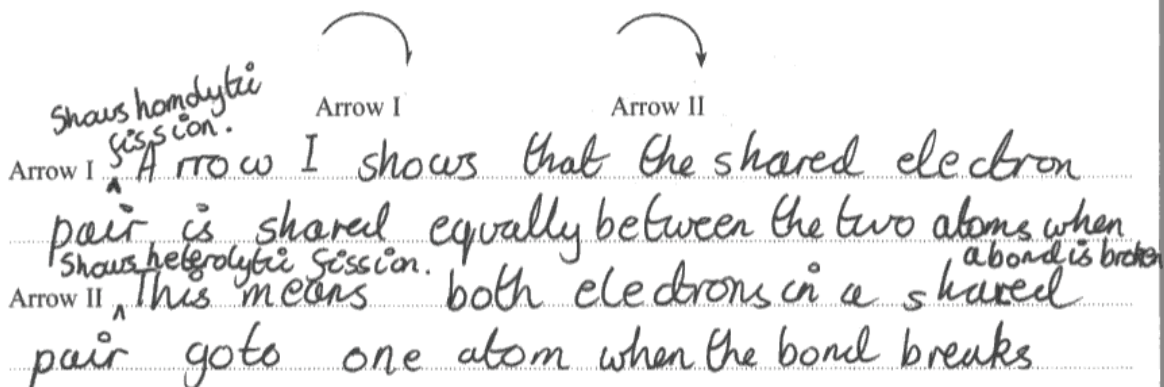 Arrow I Arrow II
Shows homolytic
fission.
Arrow I Arrow I shows that the shared electron
pair is shared equally between the two atoms when
a bond is broken
Shows heterolytic fission.
Arrow II This means both electrons in a shared
pair go to one atom when the bond breaks